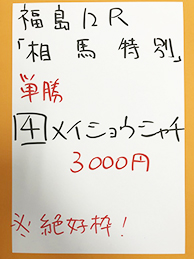 福島12R
「相馬特別」
単勝
4メイショウシャチ
3000円
※絶好枠!